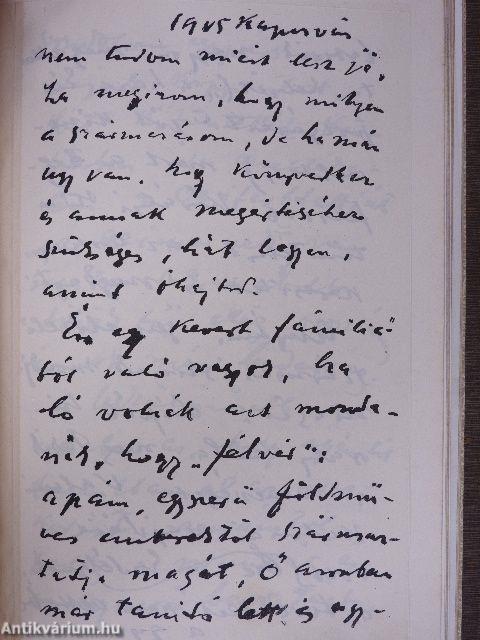 1915 Kaposvár
nem tudom miért lesz jó,
ha megirom, hogy milyen
a származásom, de ha már
ugy van, hogy könyvedhez
és annak megértéséhez
szükséges, hát legyen,
amint óhajtod.
Én egy kevert fámiliá-
ból való vagyok, ha
ló volnék azt monda-
nák, hogy „félvér":
apám, egyszerü földmü-
ves emberektől szárma-
tatja magát, Ő azonban
már tanító lett és egy-
Antikvárium.hu